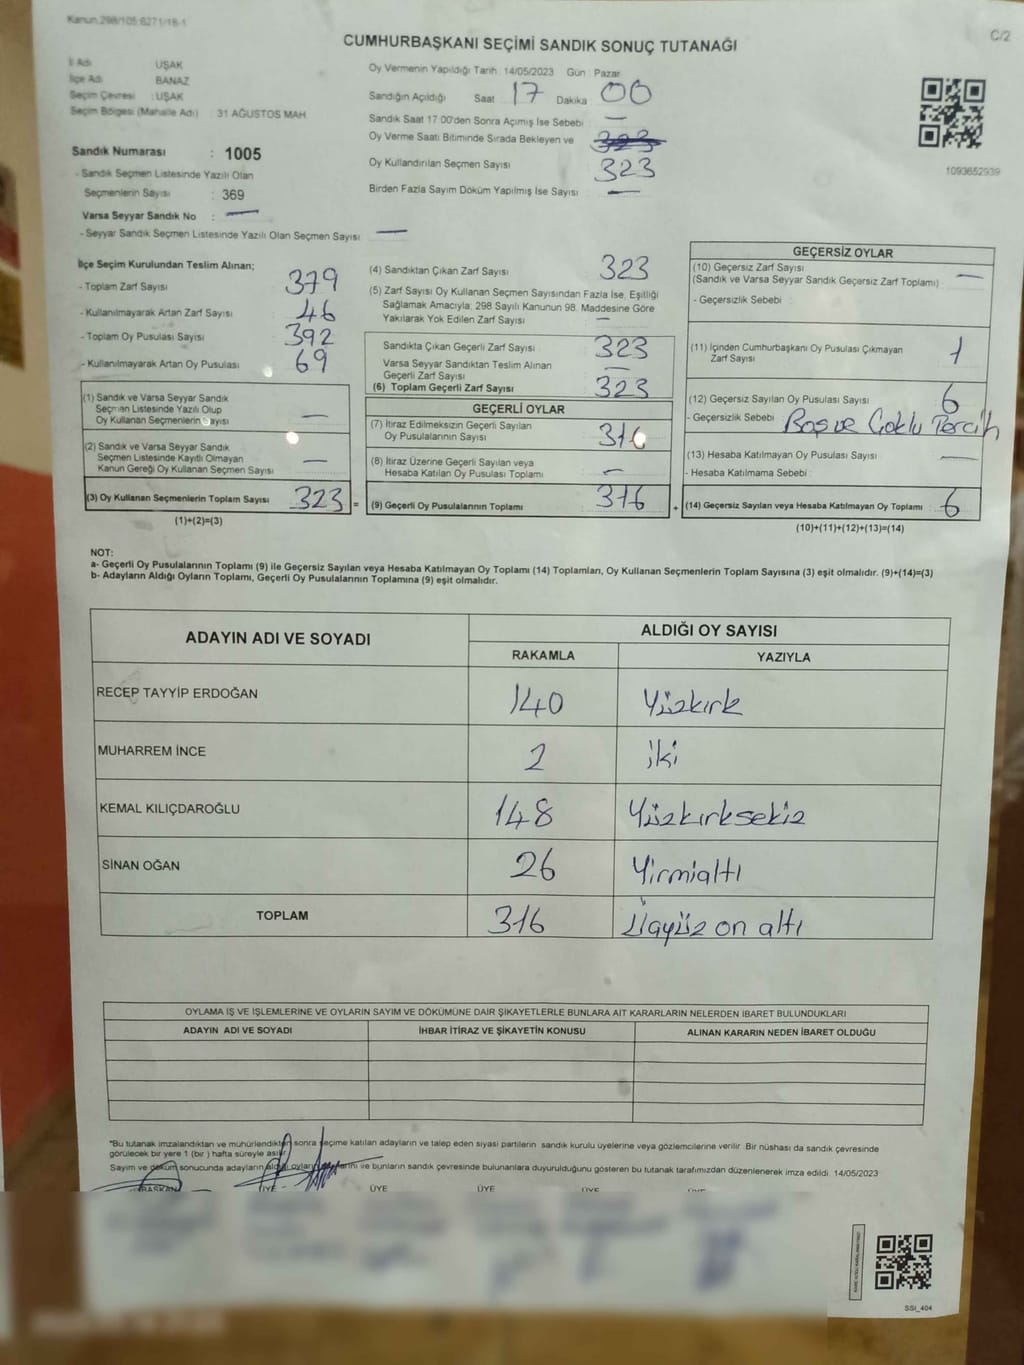 Kanun.298/105.6271/18-1
C/2
CUMHURBAŞKANI SEÇİMİ SANDIK SONUÇ TUTANAĞI
İl Adı UŞAK
İlçe Adı BANAZ
Seçim Çevresi : UŞAK
Seçim Bölgesi (Mahalle Adı) : 31 AĞUSTOS MAH
Oy Vermenin Yapıldığı Tarih : 14/05/2023 Gün : Pazar
Sandığın Açıldığı Saat 17 Dakika 00
Sandık Saat 17:00'den Sonra Açımış İse Sebebi —
Oy Verme Saati Bitiminde Sırada Bekleyen ve 323
Oy Kullandırılan Seçmen Sayısı 323
Birden Fazla Sayım Döküm Yapılmış İse Sayısı —
1093652939
Sandık Numarası : 1005
- Sandık Seçmen Listesinde Yazılı Olan
Seçmenlerin Sayısı : 369
Varsa Seyyar Sandık No : —
- Seyyar Sandık Seçmen Listesinde Yazılı Olan Seçmen Sayısı : —
İlçe Seçim Kurulundan Teslim Alınan;
- Toplam Zarf Sayısı 379
- Kullanılmayarak Artan Zarf Sayısı 46
- Toplam Oy Pusulası Sayısı 392
- Kullanılmayarak Artan Oy Pusulası 69
(1) Sandık ve Varsa Seyyar Sandık
Seçmen Listesinde Yazılı Olup
Oy Kullanan Seçmenlerin Sayısı —
(2) Sandık ve Varsa Seyyar Sandık
Seçmen Listesinde Kayıtlı Olmayan
Kanun Gereği Oy Kullanan Seçmen Sayısı —
(3) Oy Kullanan Seçmenlerin Toplam Sayısı 323 =
(1)+(2)=(3)
(4) Sandıktan Çıkan Zarf Sayısı 323
(5) Zarf Sayısı Oy Kullanan Seçmen Sayısından Fazla İse, Eşitliği
Sağlamak Amacıyla; 298 Sayılı Kanunun 98. Maddesine Göre
Yakılarak Yok Edilen Zarf Sayısı —
Sandıkta Çıkan Geçerli Zarf Sayısı 323
Varsa Seyyar Sandıktan Teslim Alınan
Geçerli Zarf Sayısı —
(6) Toplam Geçerli Zarf Sayısı 323
GEÇERLİ OYLAR
(7) İtiraz Edilmeksizin Geçerli Sayılan
Oy Pusulalarının Sayısı 316
(8) İtiraz Üzerine Geçerli Sayılan veya
Hesaba Katılan Oy Pusulası Toplamı —
(9) Geçerli Oy Pusulalarının Toplamı 316 +
GEÇERSİZ OYLAR
(10) Geçersiz Zarf Sayısı
(Sandık ve Varsa Seyyar Sandık Geçersiz Zarf Toplamı) —
- Geçersizlik Sebebi :
(11) İçinden Cumhurbaşkanı Oy Pusulası Çıkmayan
Zarf Sayısı 1
(12) Geçersiz Sayılan Oy Pusulası Sayısı 6
- Geçersizlik Sebebi : Boş ve Çoklu Tercih
(13) Hesaba Katılmayan Oy Pusulası Sayısı —
- Hesaba Katılmama Sebebi :
(14) Geçersiz Sayılan veya Hesaba Katılmayan Oy Toplamı 6
(10)+(11)+(12)+(13)=(14)
NOT:
a- Geçerli Oy Pusulalarının Toplamı (9) ile Geçersiz Sayılan veya Hesaba Katılmayan Oy Toplamı (14) Toplamları, Oy Kullanan Seçmenlerin Toplam Sayısına (3) eşit olmalıdır. (9)+(14)=(3)
b- Adayların Aldığı Oyların Toplamı, Geçerli Oy Pusulalarının Toplamına (9) eşit olmalıdır.
ADAYIN ADI VE SOYADI ALDIĞI OY SAYISI
RAKAMLA YAZIYLA
RECEP TAYYİP ERDOĞAN 140 Yüzkırk
MUHARREM İNCE 2 iki
KEMAL KILIÇDAROĞLU 148 Yüzkırksekiz
SİNAN OĞAN 26 Yirmialtı
TOPLAM 316 Üçyüz on altı
OYLAMA İŞ VE İŞLEMLERİNE VE OYLARIN SAYIM VE DÖKÜMÜNE DAİR ŞİKAYETLERLE BUNLARA AİT KARARLARIN NELERDEN İBARET BULUNDUKLARI
ADAYIN ADI VE SOYADI İHBAR İTİRAZ VE ŞİKAYETİN KONUSU ALINAN KARARIN NEDEN İBARET OLDUĞU
*Bu tutanak imzalandıktan ve mühürlendikten sonra seçime katılan adayların ve talep eden siyasi partilerin sandık kurulu üyelerine veya gözlemcilerine verilir. Bir nüshası da sandık çevresinde
görülecek bir yere 1 (bir ) hafta süreyle asılır.
Sayım ve döküm sonucunda adayların aldığı oyların ve bunların sandık çevresinde bulunanlara duyurulduğunu gösteren bu tutanak tarafımızdan düzenlenerek imza edildi. 14/05/2023
BAŞKAN ÜYE ÜYE ÜYE ÜYE ÜYE
SSI_404